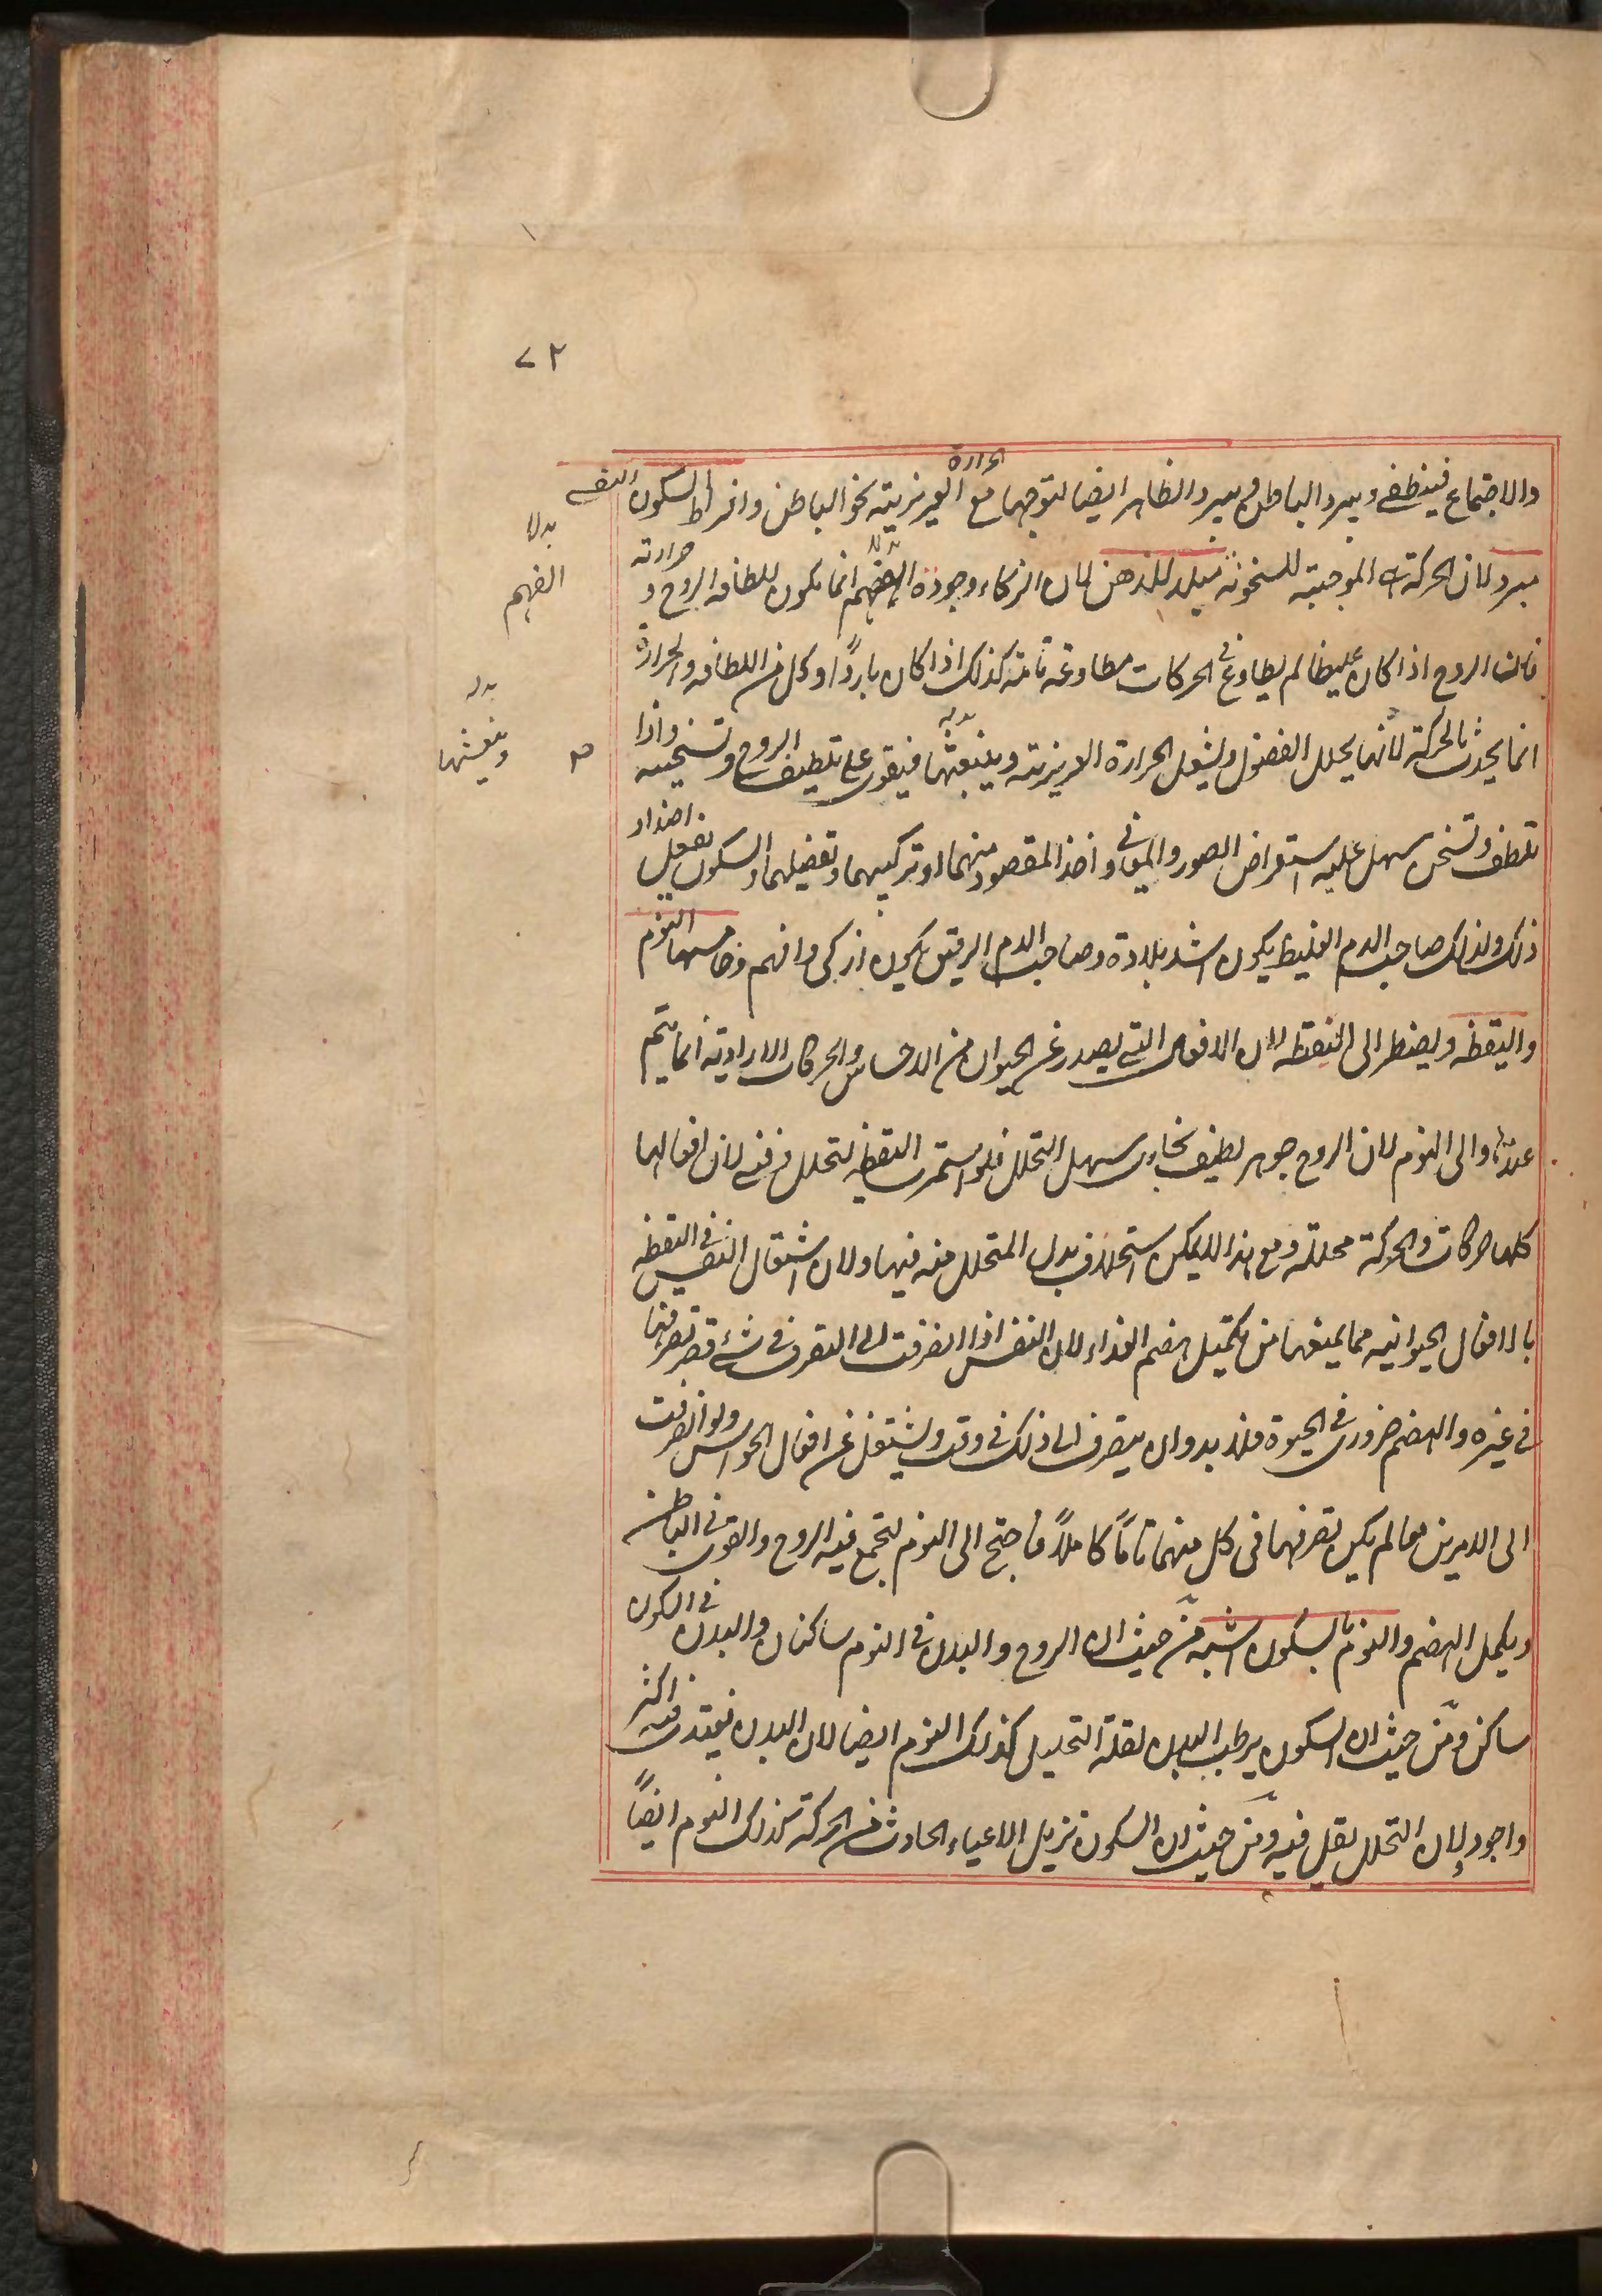 ٧٢
والاجتماع فينطفى ويبرد الباطن ويبرد الظاهر ايضا لتوجهها مع الحرارة الغريزية نحو الباطن وافراط السكون النفسى
مبرد لان الحركة هى الموجبة للسخونة مبلد للذهن لان الذكاء وجودة الفهم انما يكون للطافة الروح وحرارته
بدلا الفهم
فان الروح اذا كان غليظا لم يطاوع فى الحركات مطاوعة تامة كذلك اذا كان باردًا وكل من اللطافة والحرارة
انما يحدث بالحركة لانها يحلل الفضول ويشعل الحرارة الغريزية وينبعثها فيقوى على تلطيف الروح وتسخينه واذا
بدله وينعشها
تلطف وتسخن سهل عليه استعراض الصور والمعانى واخذ المقصود منهما او تركيبهما وتفصيلهما والسكون يفعل اضداد
ذلك ولذلك صاحب الدم الغليظ يكون اشد بلادة وصاحب الدم الرقيق يكون ازكى وافهم وخامسها النوم
واليقظة ويضطر الى اليقظة لان الافعال التى يصدر عن الحيوان من الاحساس والحركات الارادية انما يتم
عندها والى النوم لان الروح جوهر لطيف بخارى سهل التحلل فلو استمرت اليقظة لتحلل وفنى لان افعالها
كلها حركات والحركة محللة ومع هذا لا يمكن استخلاف بدل المتحلل منه فيها ولان اشتغال النفس فى اليقظة
بالافعال الحيوانية مما يمنعها من تكميل هضم الغذاء لان النفس اذا انصرفت الى التصرف فى شئ قصر تصرفها
فى غيره والهضم ضرورى فى الحيوة فلا بد وان يتصرف الى ذلك فى وقت ويشتغل عن افعال الحواس ولو انصرفت
الى الامرين معا لم يكن تصرفها فى كل منهما تامًا كاملاً فاحتيج الى النوم لتجمع فيه الروح والقوى فى الباطن
ويكمل الهضم والنوم بالسكون اشبه من حيث ان الروح والبدن فى النوم ساكنان والبدن فى السكون
ساكن ومن حيث ان السكون يرطب البدن لقلة التحليل كذلك النوم ايضا لان البدن يغتذى فيه اكثر
واجود ولان التحلل يقل فيه ومن حيث ان السكون تزيل الاعياء الحادث من الحركة كذلك النوم ايضاً